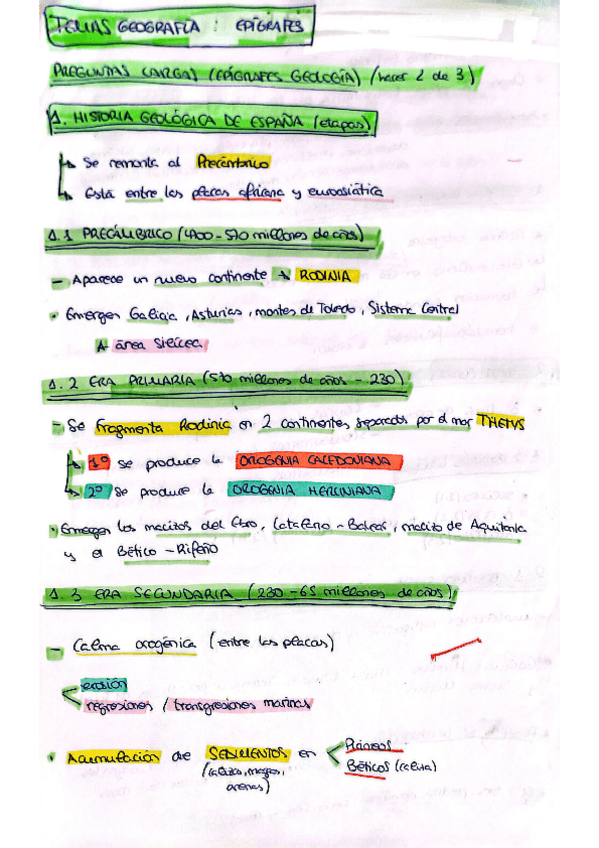 TEMAS GEOGRAFÍA : EPÍGRAFES
PREGUNTAS LARGAS (EPÍGRAFES GEOLOGÍA) (hacer 2 de 3)
1. HISTORIA GEOLÓGICA DE ESPAÑA (etapas)
↳ Se remonta al Precámbrico
↳ Está entre las placas africana y euroasiática
1.1 PRECÁMBRICO (4700 - 570 millones de años)
- Aparece un nuevo continente → RODINIA
• Emergen Galicia, Asturias, montes de Toledo, Sistema Central
↳ área silícea
1.2 ERA PRIMARIA (570 millones de años - 230)
- Se fragmenta Rodinia en 2 continentes, separados por el mar THETYS
↳ 1º se produce la OROGENIA CALEDONIANA
↳ 2º se produce la OROGENIA HERCINIANA
• Emergen los macizos del Ebro, Catalano-Balear, macizo de Aquitania
y el Bético-Rifeño
1.3 ERA SECUNDARIA (230 - 65 millones de años)
- Calma orogénica (entre las placas)
erosión
regresiones / transgresiones marinas
• Acumulación de SEDIMENTOS en Pirineos
(caliza, margas, arenas)
Béticos (caliza)